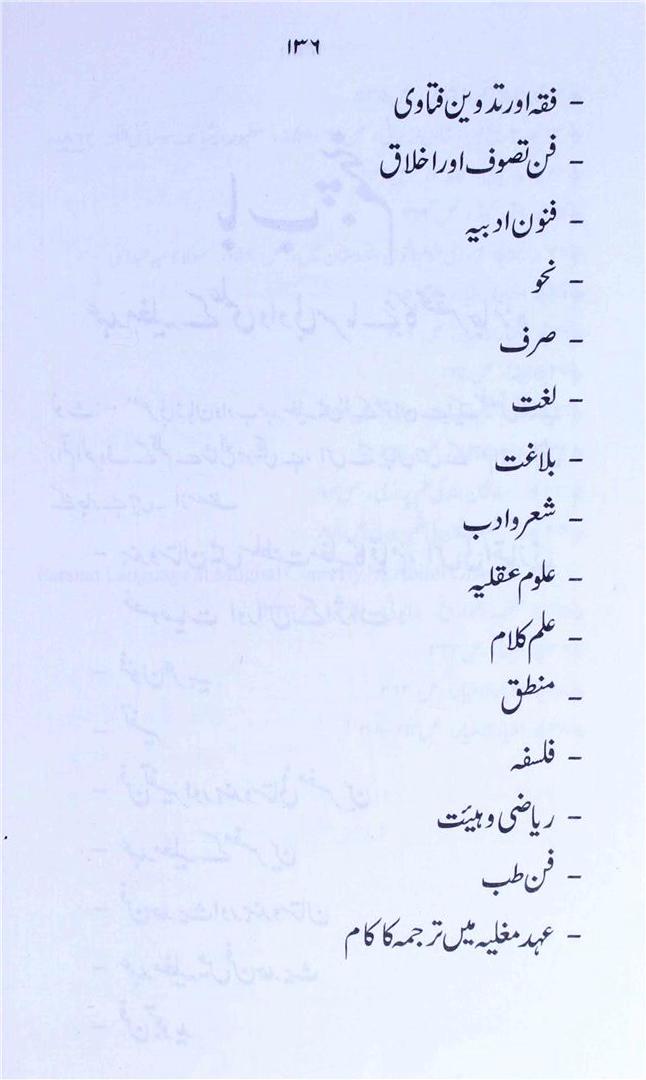 ۱۳۶
- فقہ اور تدوین فتاوی
- فن تصوف اور اخلاق
- فنون ادبیہ
- نحو
- صرف
- لغت
- بلاغت
- شعر و ادب
- علوم عقلیہ
- علم کلام
- منطق
- فلسفہ
- ریاضی و ہیئت
- فن طب
- عہد مغلیہ میں ترجمہ کا کام